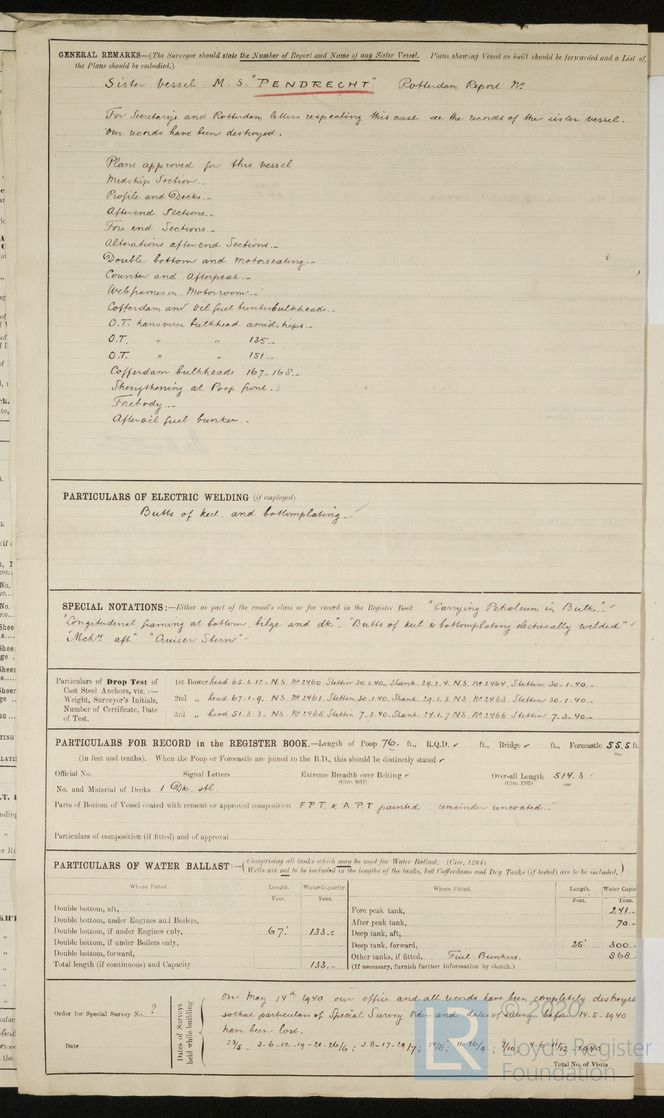 GENERAL REMARKS—(The Surveyor should state the Number of Report and Name of any Sister Vessel. Plans showing Vessel as built should be forwarded and a List of
the Plans should be embodied.)
Sister vessel M.S. "PENDRECHT" Rotterdam Report No
For Secretary's and Rotterdam letters respecting this case see the records of the sister vessel.
Our records have been destroyed.
Plans approved for this vessel
Midship Section.-
Profile and Decks.-
Afterend Sections.-
Fore end Sections.-
Alterations afterend Sections.-
Double bottom and motorseating.-
Counter and Afterpeak.-
Webframes in Motorroom.-
Cofferdam and oil fuel bunkerbulkheads.-
O.T. transverse bulkhead amidships.-
O.T. " " 135.-
O.T. " " 151.-
Cofferdam bulkheads 167-168.-
Strengthening at Poop front.
Forebody.-
Afteroil fuel bunker.
PARTICULARS OF ELECTRIC WELDING (if employed)
Butts of keel and bottomplating.-
SPECIAL NOTATIONS:—Either as part of the vessel's class or for record in the Register Book "Carrying Petroleum in Bulk".
"Longitudinal framing at bottom, bilge and dk". "Butts of keel & bottomplating electrically welded"
"Mchy aft" "Cruiser Stern"
Particulars of Drop Test of 1st Bower head 65.3.12 - N.S. No 2460 Stettin 30.1.40. Shank 29.2.4 N.S. No 2464 Stettin 30-1.40.-
Cast Steel Anchors, viz. :—
Weight, Surveyor's Initials, 2nd " head 67.1.9. N.S. No 2461 Stettin 30.1.40. Shank 29.1.5 N.S. No 2463 Stettin 30.1.40.-
Number of Certificate, Date
of Test. 3rd " head 51.3.3. N.S. No 2465 Stettin 7.3.40. Shank 24.1.7 N.S. No 2466 Stettin 7.3.40.-
PARTICULARS FOR RECORD in the REGISTER BOOK.—Length of Poop 76. ft., R.Q.D. ft., Bridge ft., Forecastle 55.5 ft.
(in feet and tenths). When the Poop or Forecastle are joined to the B.D., this should be distinctly stated
Official No. Signal Letters Extreme Breadth over Belting Over-all Length 514.3
No. and Material of Decks 1 Dk. stl.
Parts of Bottom of Vessel coated with cement or approved composition F.P.T. & A.P.T painted. remainder uncoated.
Particulars of composition (if fitted) and of approval
PARTICULARS OF WATER BALLAST:—(Comprising all tanks which may be used for Water Ballast. (Circ. 1284)
Wells are not to be included in the lengths of the tanks, but Cofferdams and Dry Tanks (if tested) are to be included.)
Where Fitted. Length. Water Capacity. Where Fitted. Length. Water Capac
Feet. Tons. Feet. Tons.
Double bottom, aft, Fore peak tank, 241.-
Double bottom, under Engines and Boilers, After peak tank, 70.-
Double bottom, if under Engines only, 67.' 133. Deep tank, aft,
Double bottom, if under Boilers only, Deep tank, forward, 300.-
Double bottom, forward, Other tanks, if fitted, Fuel Bunkers. 868.-
Total length (if continuous) and Capacity 133.- (If necessary, furnish further information by sketch.)
Order for Special Survey No. ?
Date
Dates of Surveys
held while building
On May 14th 1940 our office and all records have been completely destroyed
so that particulars of Special Survey Order and dates of survey before 14.5.1940
have been lost.
Total No. of Visits
© 2020
LR
Lloyd's Register
Foundation